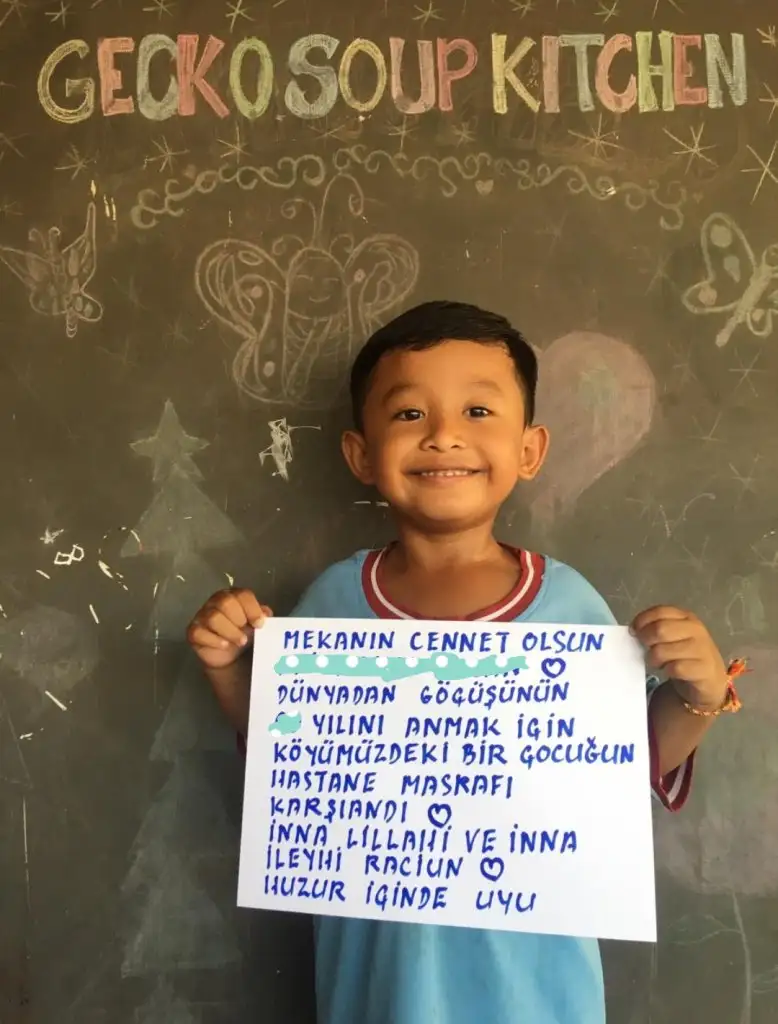 GECKO SOUP KITCHEN
MEKANIN CENNET OLSUN
DÜNYADAN GÖGÜŞÜNÜN
YILINI ANMAK IGIN
KÖYÜMÜZDEKİ BİR GOCUĞUN
HASTANE MASRAFI
KARŞIANDI
İNNA LILLAHİ VE İNNA
İLEYHİ RACIUN
HUZUR IGINDE UYU